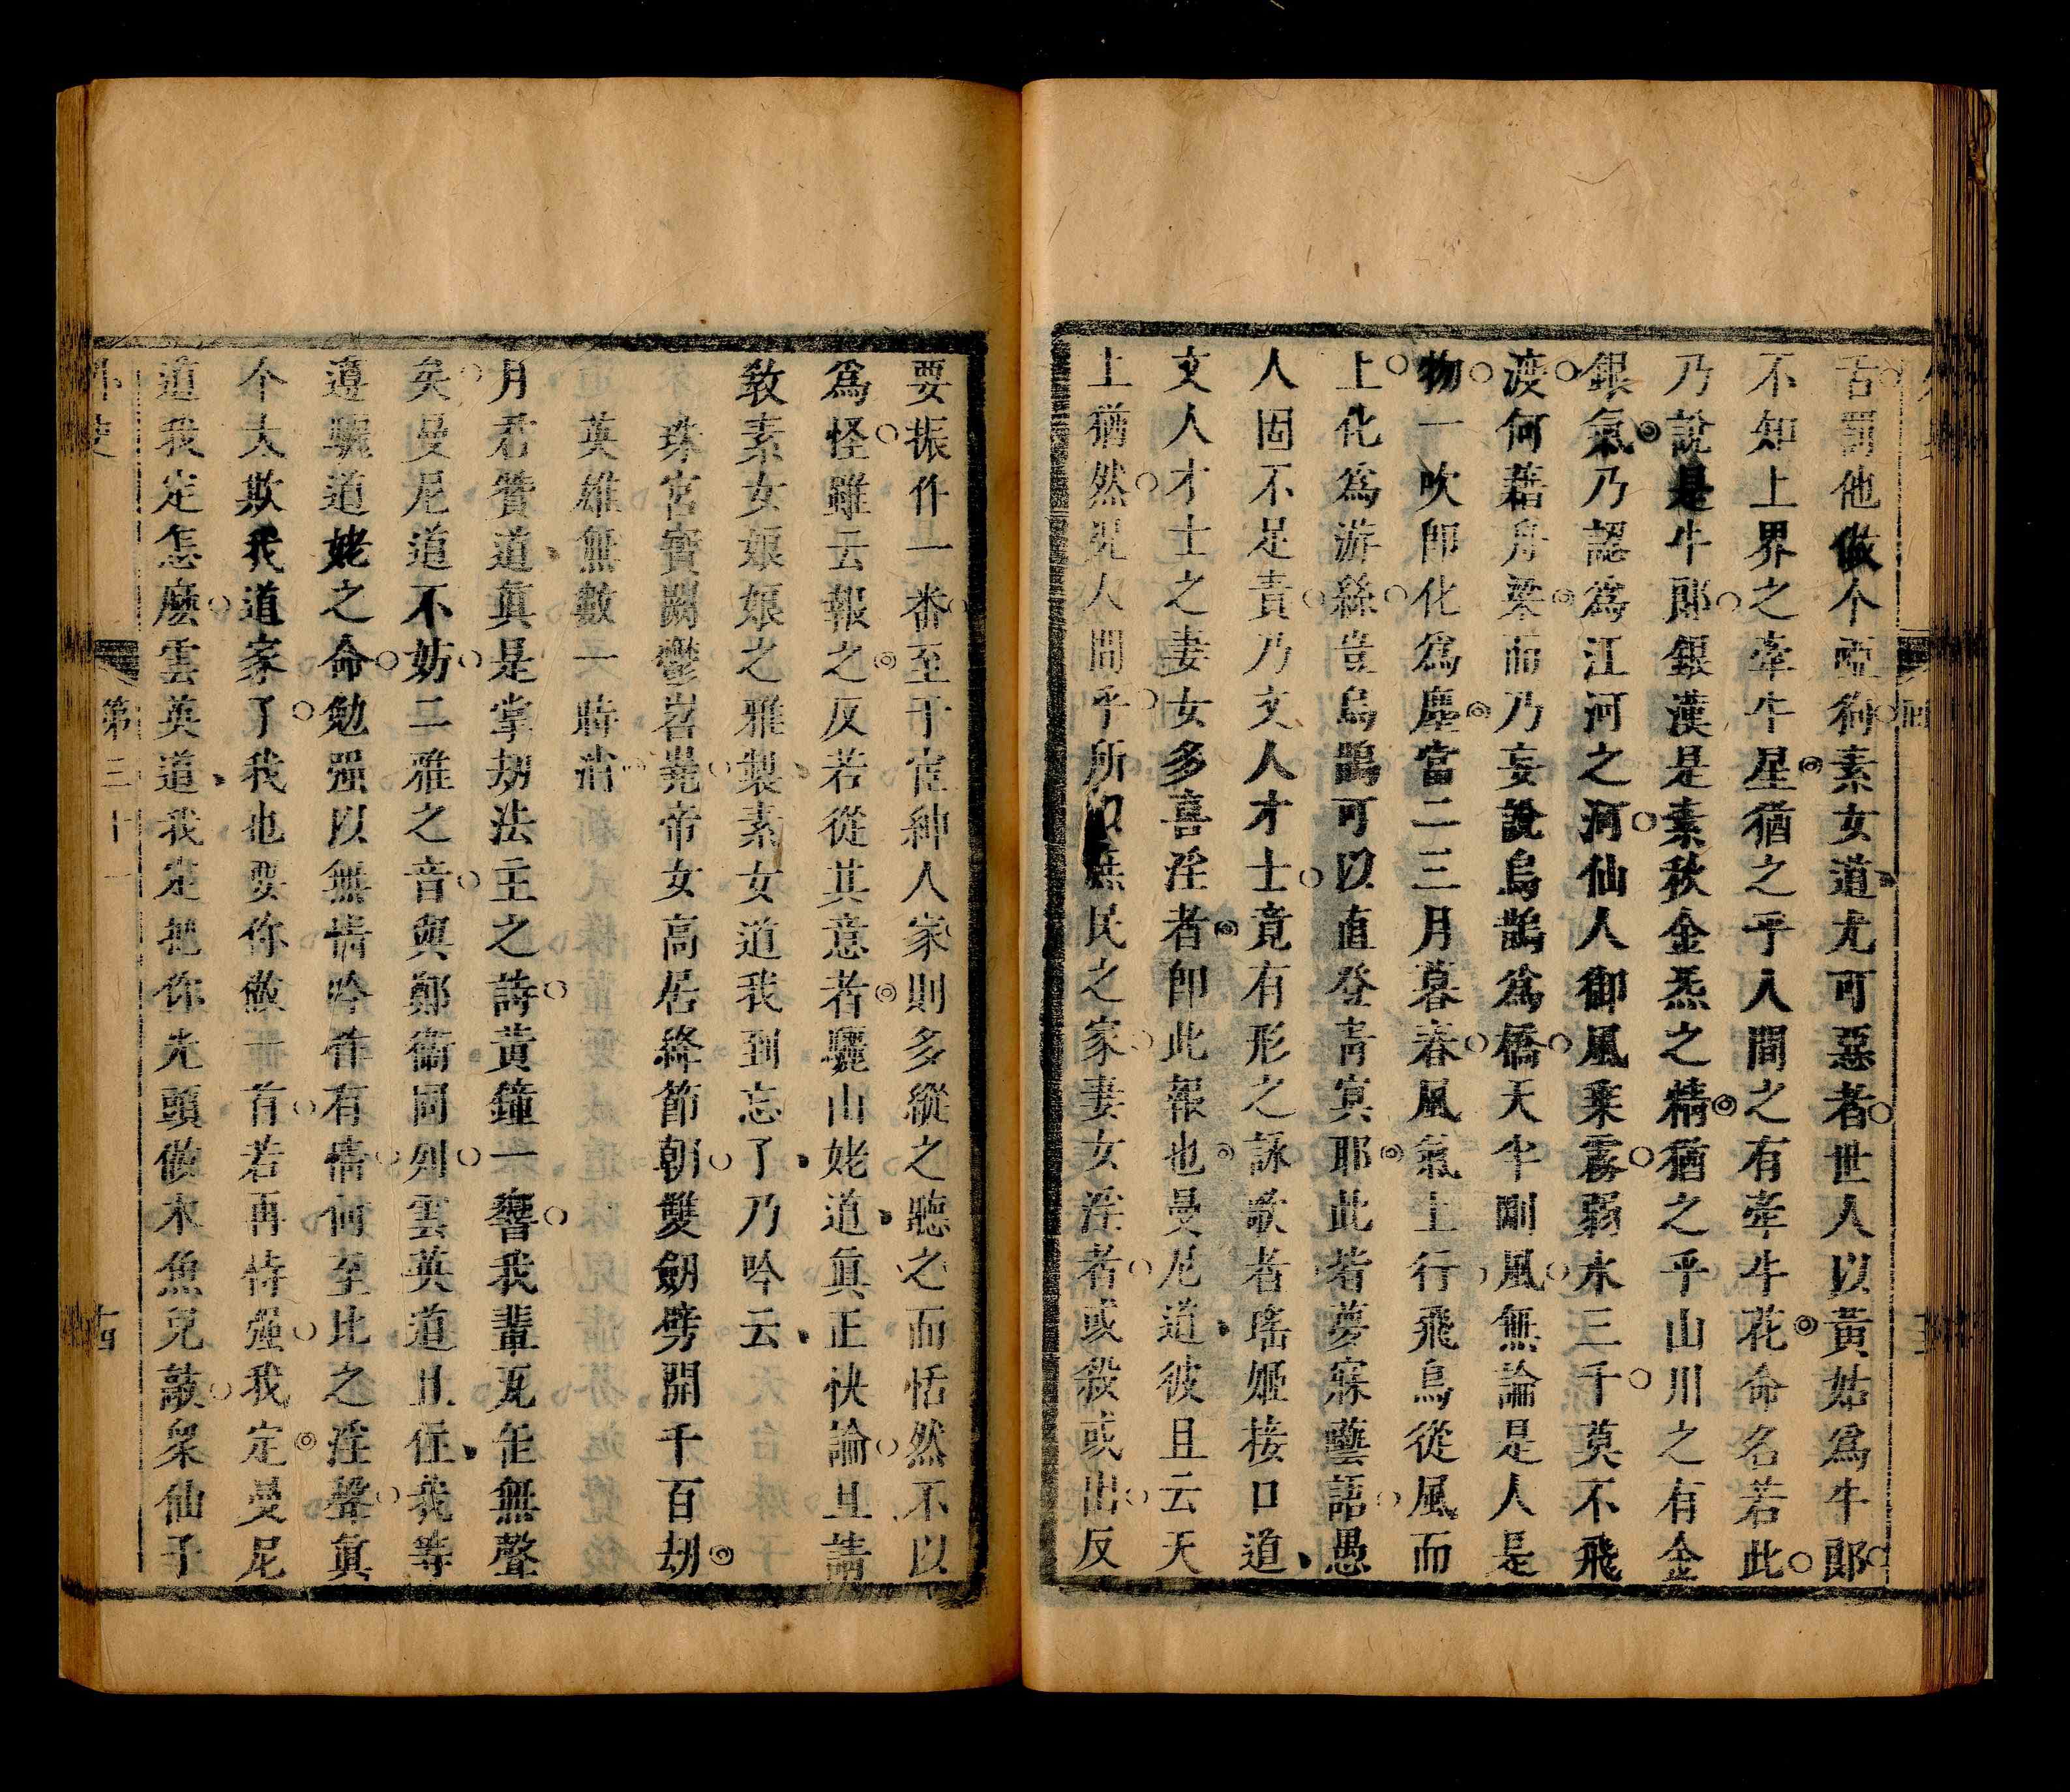 舌罰他做个啞狗素女道尤可惡者世人以黃姑爲牛郎
不知上界之牽牛星猶之乎人間之有牽牛花命名若此
乃說是牛郎銀漢是素秋金炁之精猶之乎山川之有金
銀氣乃認爲江河之河仙人御風乘霧弱水三千莫不飛
渡何藉舟梁而乃妄說烏鵲爲橋天半剛風無論是人是
物一吹卽化爲塵當二三月暮春風氣上行飛鳥從風而
上化爲游絲豈烏鵲可以直登青冥耶此皆夢寐囈語愚
人固不足責乃文人才士竟有形之詠歌者瑤姬接口道
文人才士之妻女多喜淫者卽此報也曼尼道彼且云天
上猶然況人間乎所以庶民之家妻女淫者或殺或出反
要振作一番至于宦紳人家則多縱之聽之而恬然不以
爲怪雖云報之反若從其意者驪山姥道眞正快論且請
敎素女娘娘之雅製素女道我到忘了乃吟云
珠宮寶闕鬱岧嶤帝女高居絳節朝雙劒劈開千百刼
英雄無數一時消
月君贊道眞是掌刼法主之詩黃鐘一響我輩瓦缶無聲
矣曼尼道不妨二雅之音與鄭衞同列雲英道且住我等
遵驪道姥之命勉强以無情吟作有情何至比之淫聲眞
个太欺我道家了我也要你做一首若再恃强我定曼尼
道我定怎麽雲英道我定把你光頭做木魚兒敲衆仙子
外史
第三十一
十四